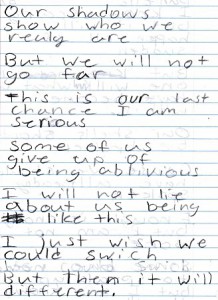 Our shadows
show who we
realy are
But we will not
go far
This is our last
chance I am
serious
Some of us
give up of
being ablivious
I will not lie
about us being
like this
I just wish we
could swich
But then it will
different.